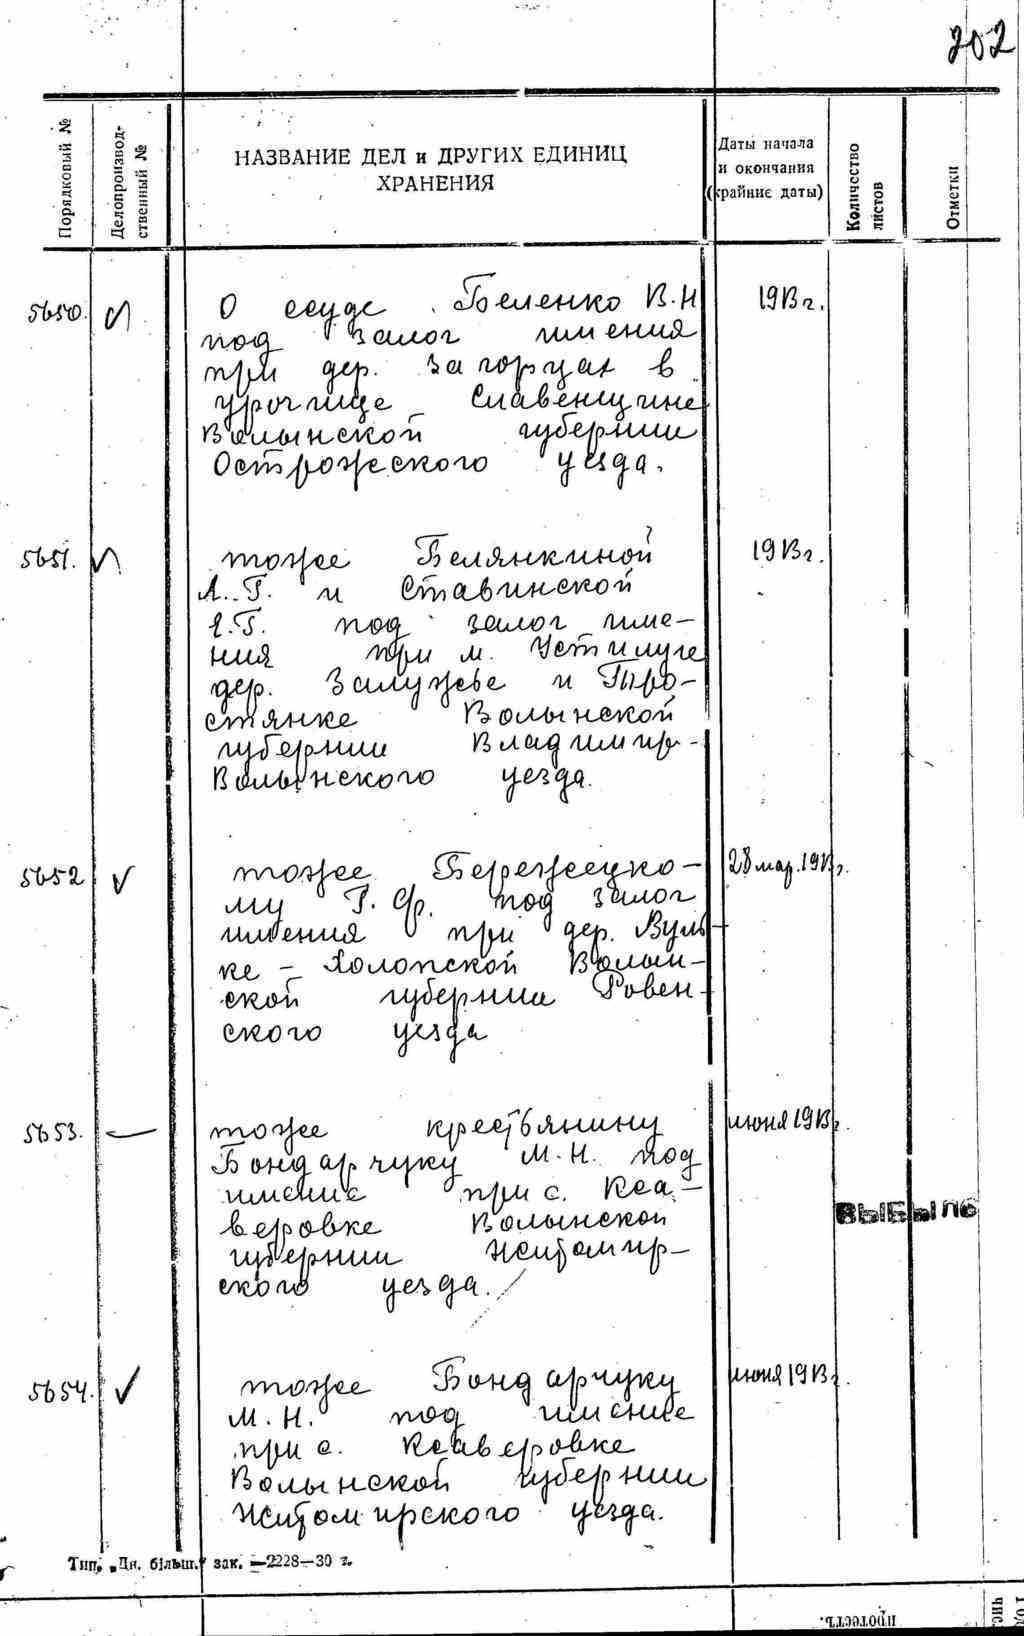 202
Порядковый №
Делопроизвод-
ственный №
НАЗВАНИЕ ДЕЛ и ДРУГИХ ЕДИНИЦ
ХРАНЕНИЯ
Даты начала
и окончания
(крайние даты)
Количество
листов
Отметки
5650. О ссуде Беленко В.Н 1913 г.
под залог имения
при дер. Загорцах в
урочище Славенщине
Волынской губернии
Острожского уезда.
5651. тоже Белянкиной 1913 г.
А.Г. и Ставинской
Е.Г. под залог име-
ния при м. Устилуге
дер. Залужье и Про-
стянке Волынской
губернии Владимир-
Волынского уезда.
5652 тоже Бережецко- 28 мар. 1913 г.
му Г. Ф. под залог
имения при дер. Вуль-
ке - Холопской Волын-
ской губернии Ровен-
ского уезда
5653. тоже крестьянину июня 1913 г.
Бондарчуку М.Н. под
имение при с. Кса-
веровке Волынской
губернии Житомир-
ского уезда.
ВЫБЫЛО
5654. тоже Бондарчуку июня 1913 г.
М.Н. под имение
при с. Ксаверовке
Волынской губернии
Житомирского уезда.
Тип. „Дн. більш." зак. —2228—30 г.
протестъ.